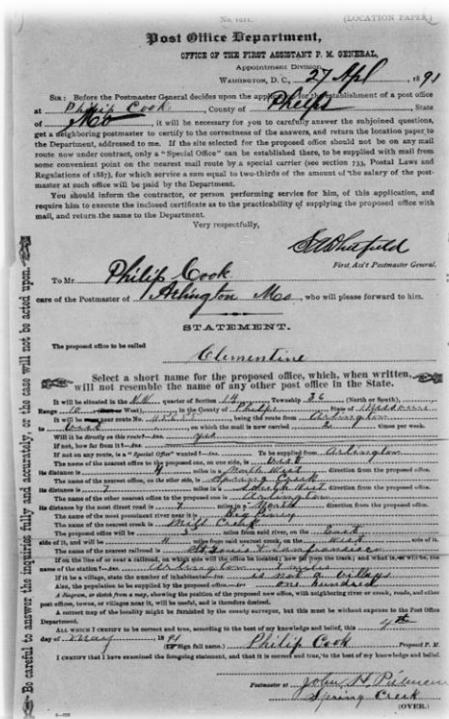 No. 1011.
(LOCATION PAPER)
Post Office Department,
OFFICE OF THE FIRST ASSISTANT P. M. GENERAL,
Appointment Division,
WASHINGTON, D. C., 27 Apl, 1891
SIR: Before the Postmaster General decides upon the application for the establishment of a post office
at Philip Cook, County of Phelps, State
of Mo, it will be necessary for you to carefully answer the subjoined questions,
get a neighboring postmaster to certify to the correctness of the answers, and return the location paper to
the Department, addressed to me. If the site selected for the proposed office should not be on any mail
route now under contract, only a "Special Office" can be established there, to be supplied with mail from
some convenient point on the nearest mail route by a special carrier (see section 733, Postal Laws and
Regulations of 1887), for which service a sum equal to two-thirds of the amount of the salary of the post-
master at such office will be paid by the Department.
You should inform the contractor, or person performing service for him, of this application, and
require him to execute the inclosed certificate as to the practicability of supplying the proposed office with
mail, and return the same to the Department.
Very respectfully,
First Ass't Postmaster General.
To Mr Philip Cook
care of the Postmaster of Arlington Mo, who will please forward to him.
STATEMENT.
The proposed office to be called Clementine
Select a short name for the proposed office, which, when written,
will not resemble the name of any other post office in the State.
It will be situated in the N.W. quarter of Section 14, Township 36 (North or South),
Range 10 West), in the County of Phelps, State of Missouri
It will be route No., being the route from Arlington
to, on which the mail is now carried 2 times per week.
Will it be directly on this route? yes
If not, how far from it?
If not on any route, is a "Special Office" wanted? To be supplied from Arlington
The name of the nearest office to the proposed one, on one side, is
its distance is 9 miles in a North West direction from the proposed office.
The name of the nearest office, on the other side, is Spring Creek
its distance is 7 miles in a South West direction from the proposed office.
The name of the other nearest office to the proposed one is Arlington
its distance by the most direct road is miles in a North direction from the proposed office.
The name of the most prominent river near it is Big Piney
The name of the nearest creek is Mill Creek
The proposed office will be 3 miles from said river, on the East
side of it, and will be miles from said nearest creek, on the West side of it.
The name of the nearest railroad is St Louis & Sanfrancisco
If on the line of or near a railroad, on which side will the office be located; how far from the track; and what is, or will be, the
name of the station? Arlington 7 miles
If it be a village, state the number of inhabitants is not a village
Also, the population to be supplied by the proposed office one hundred
A diagram, or sketch from a map, showing the position of the proposed new office, with neighboring river or creek, roads, and other
post offices, towns, or villages near it, will be useful, and is therefore desired.
A correct map of the locality might be furnished by the county surveyor, but this must be without expense to the Post Office
Department.
ALL WHICH I CERTIFY to be correct and true, according to the best of my knowledge and belief, this 4th
day of May, 1891
(Sign full name.) Philip Cook, Proposed P. M.
I CERTIFY that I have examined the foregoing statement, and that it is correct and true, to the best of my knowledge and belief.
John H.
Postmaster at Spring Creek
(OVER.)
Be careful to answer the inquiries fully and accurately, or the case will not be acted upon.